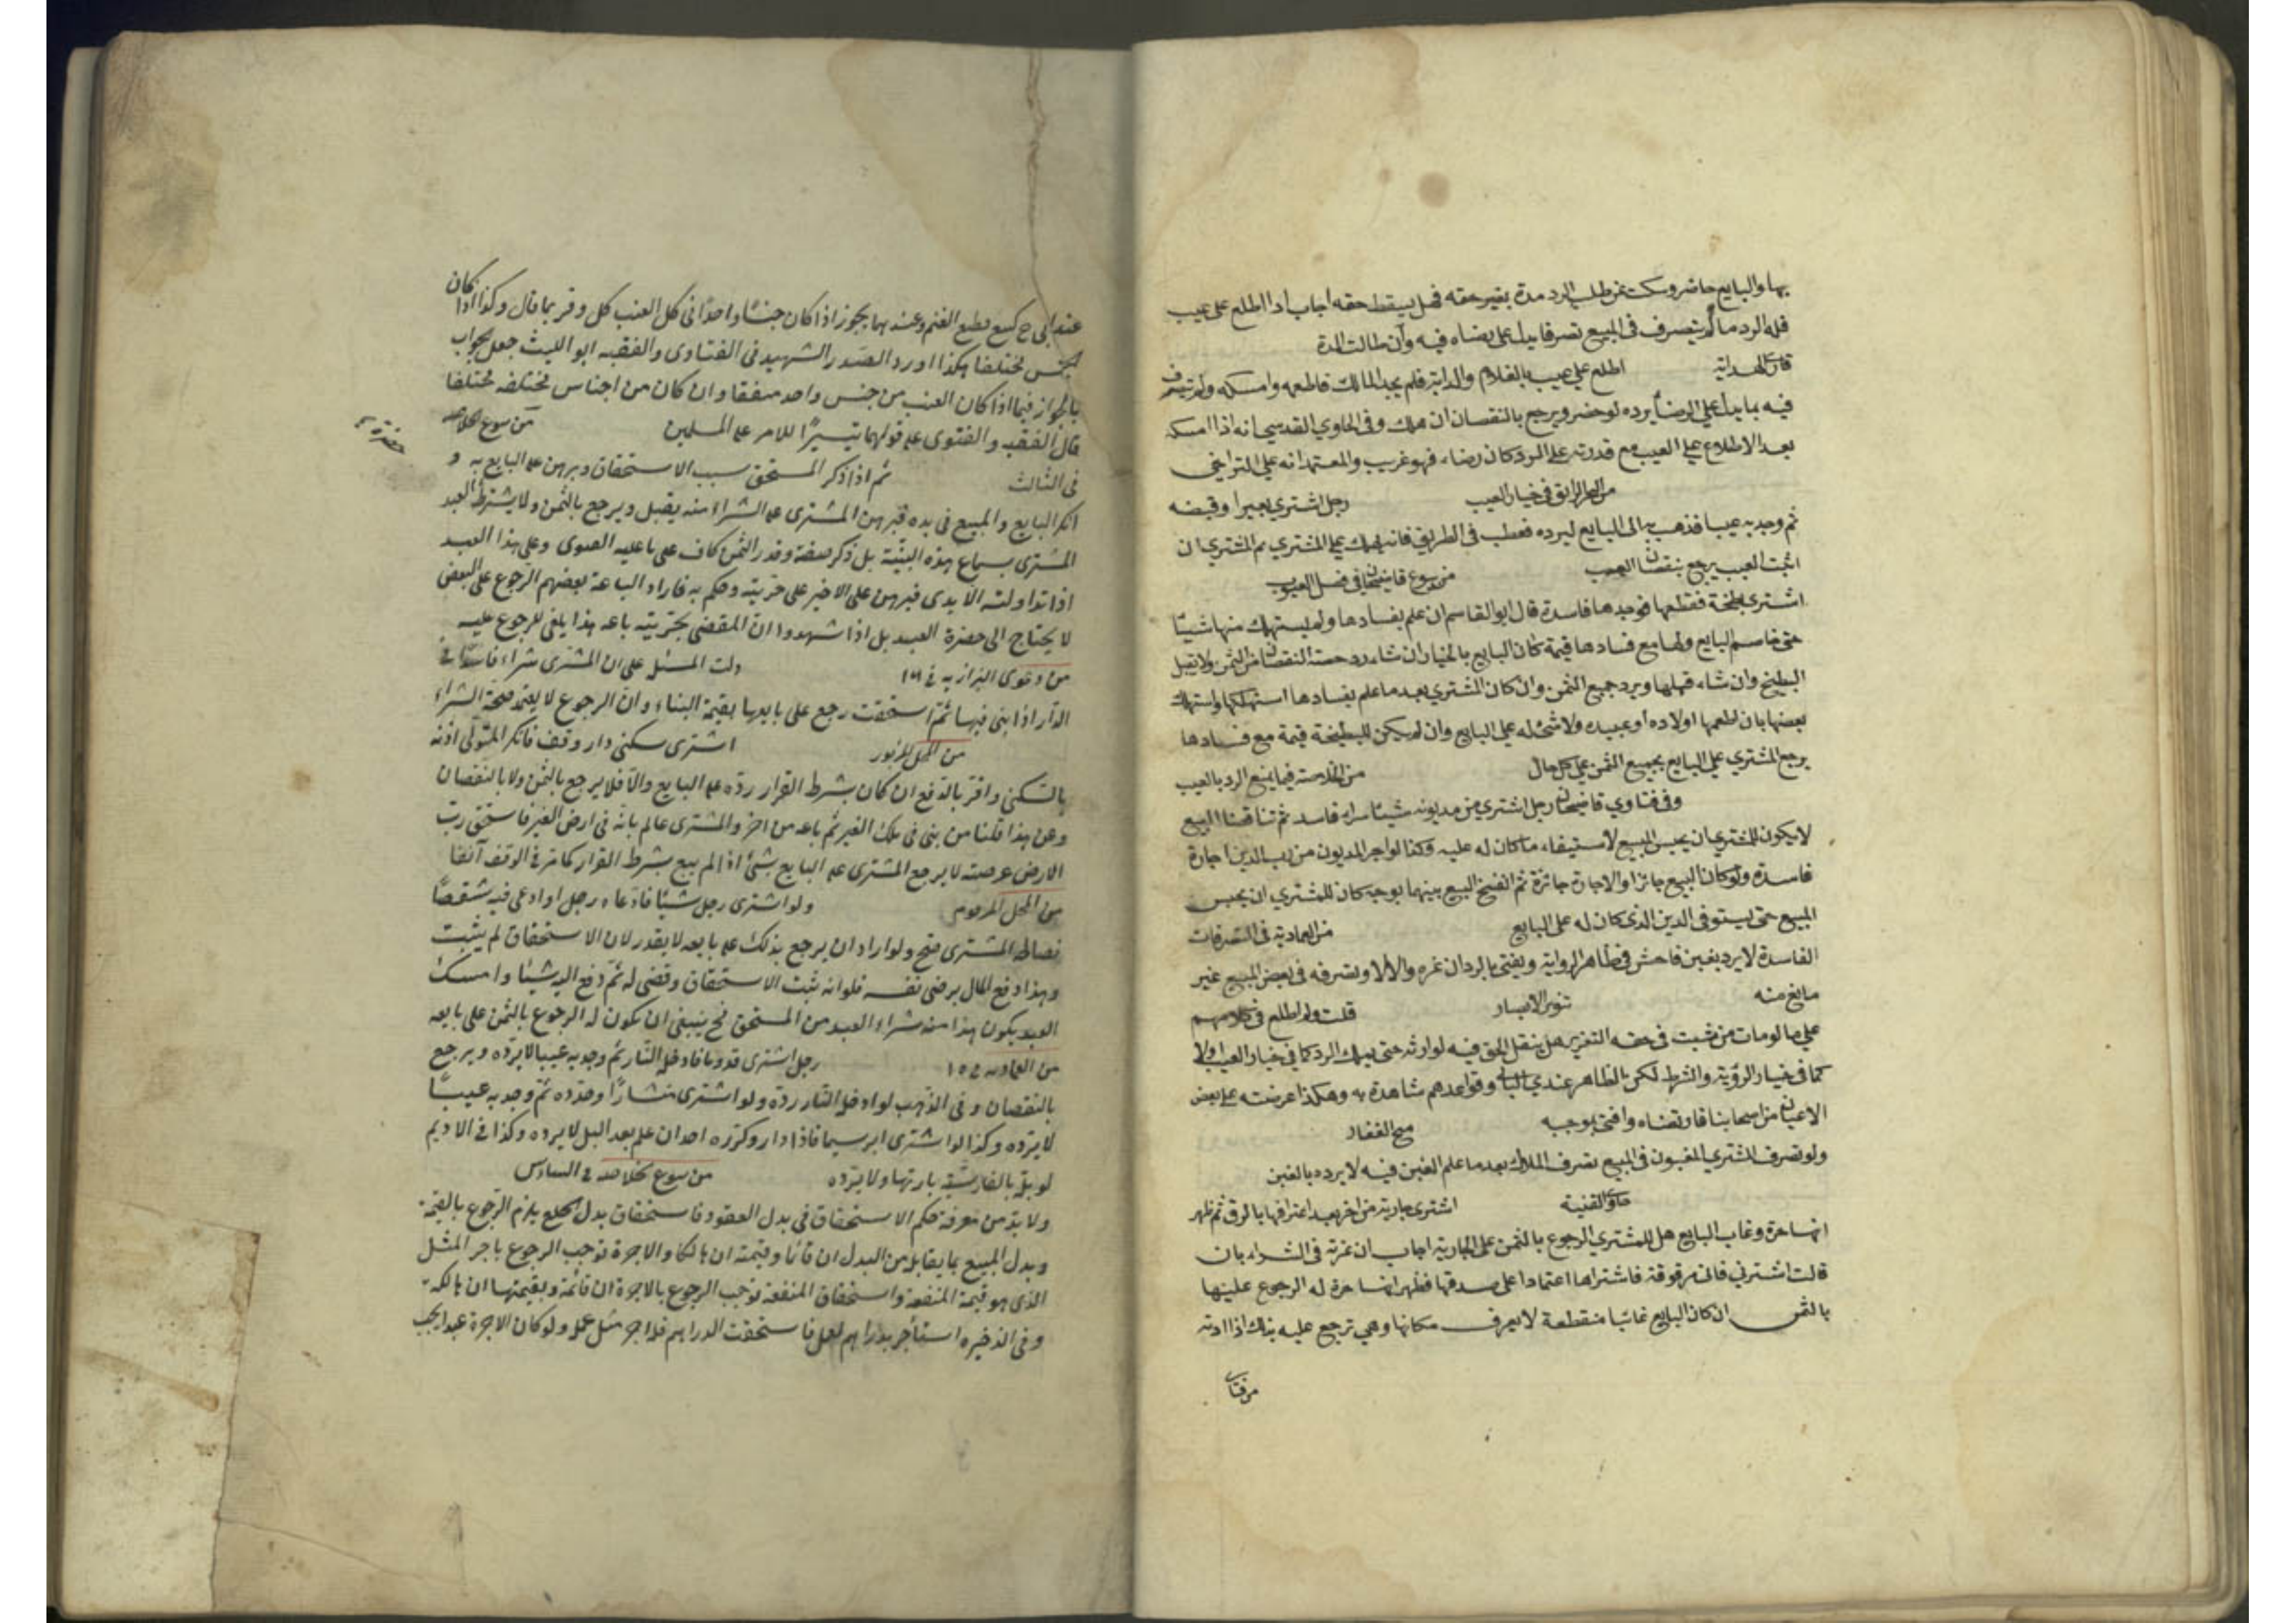 بها والبايع حاضر وسكت عن طلب الرد مدة بغير حقه فهل يسقط حقه اجاب اذا اطلع على عيب
فله الرد ما لم يتصرف فى المبيع تصرفا يدل على رضاه فيه وان طالت المدة
قارى الهداية اطلع على عيب بالغلام والدابة فلم يجد المالك فاطعمه وامسكه ولم يتصرف
فيه بما يدل على الرضا يرده لو حضر ويرجع بالنقصان ان هلك وفى الحاوي القدسي انه اذا امسكه
بعد الاطلاع على العيب مع قدرته على الرد كان رضاء فهو غريب والمعتمد انه على التراخي
من البحر الرايق فى خيار العيب رجل اشتري بعيرا وقبضه
ثم وجد به عيبا فذهب به الى البايع ليرده فعطب فى الطريق فانه يهلك على المشتري ثم المشتري ان
اثبت العيب يرجع بنقصان العيب من بيوع قاضيخان فى فصل العيوب
اشترى بطيخة فقطعها فوجدها فاسدة قال ابو القاسم ان علم بفسادها ولم يستهلك منها شيئا
حتى خاصم البايع ولها مع فسادها قيمة كان البايع بالخيار ان شاء رد حصة النقصان من الثمن ولا يقبل
البطيخ وان شاء قبلها ويرد جميع الثمن وان كان المشتري بعد ما علم بفسادها استهلكها واستهلك
بعضها بان اطعمها اولاده او عبيده ولا شئ له على البايع وان لم يكن للبطيخة قيمة مع فسادها
يرجع المشتري على البايع بجميع الثمن على كل حال من الخلاصة فيما يمنع الرد بالعيب
وفى فتاوي قاضيخان رجل اشتري من مديونه شيئا شراء فاسدا ثم تناقضا البيع
لا يكون للمشتري ان يحبس المبيع لاستيفاء ما كان له عليه وكذا لو اجر المديون من رب الدين اجارة
فاسدة ولو كان البيع جائزا والاجارة جائزة ثم انفسخ البيع بينهما بوجه كان للمشتري ان يحبس
المبيع حتى يستوفى الدين الذى كان له على البايع من العمادية فى التصرفات
الفاسدة لا يرد بغبن فاحش فى ظاهر الرواية ويفتى بالرد ان غره والا لا وتصرفه فى بعض المبيع غير
مانع منه تنوير الابصار قلت ولم اطلع فى كلامهم
على ما لو مات من ثبت فى حقه التغرير هل ينتقل الحق فيه لوارثه حتى يملك الرد كما فى خيار العيب او لا
كما فى خيار الرؤية والشرط لكن الظاهر عندي الثاني وقواعدهم شاهدة به وهكذا عرضته على بعض
الاعيان من اصحابنا فارتضاه وافتى بموجبه منح الغفار
ولو تصرف المشتري المغبون فى المبيع تصرف الملاك بعد ما علم الغبن فيه لا يرده بالغبن
حاوي القنية اشترى جارية من اخر بعد اعترافها بالرق ثم ظهر
انها حرة وغاب البايع هل للمشتري الرجوع بالثمن على الجارية اجاب ان غرته فى الشراء بان
قالت اشترني فانى مرقوقة فاشتراها اعتمادا على صدقها فظهر انها حرة له الرجوع عليها
بالثمن ان كان البايع غائبا منقطعة لا يعرف مكانها وهى ترجع عليه بذلك اذا ادته
من فتاوى
عند ابى ح كبيع قطيع الغنم وعندهما يجوز اذا كان جنسا واحدا فى كل العنب كل وقر بما قال وكذا اذا كان
الجنس مختلفا هكذا اورد الصدر الشهيد فى الفتاوى والفقيه ابو الليث جعل الجواب
بالجواز فيما اذا كان العنب من جنس واحد متفقا وان كان من اجناس مختلفه مختلفا
قال الفقيه والفتوى على قولهما تيسيرا للامر على المسلمين من بيوع الخلاصه
فى الثالث ثم اذا ذكر المستحق سبب الاستحقاق وبرهن على البايع به و
انكر البايع والمبيع فى يده فبرهن المشترى على الشراء منه يقبل ويرجع بالثمن ولا يشترط العبد
المشترى بسماع هذه البينة بل ذكر صفته وقدر الثمن كاف على ما عليه الفتوى وعلى هذا العبد
اذا تداولته الايدى فبرهن على الاخير على حريته وحكم به فاراد الباعة بعضهم الرجوع على البعض
لا يحتاج الى حضرة العبد بل اذا شهدوا ان المقضى بحريته باعه هذا يكفى للرجوع عليه
من دعوى البزازيه دلت المسئله على ان المشترى شراء فاسدا فى
الدار اذا بنى فيها ثم استحقت رجع على بايعها بقيمة البناء وان الرجوع لا يعتمد صحة الشراء
من المحل المزبور اشترى سكنى دار وقف فانكر المتولى اذنه
بالسكنى وامر بالدفع ان كان بشرط القرار رده على البايع والا فلا يرجع بالثمن ولا بالنقصان
وعن هذا قلنا من بنى فى ملك الغير ثم باعه من اخر والمشترى عالم بانه فى ارض الغير فاستحق رب
الارض عرصته لا يرجع المشترى على البايع بشئ اذا لم يبع بشرط القرار كما مر فى الوقف آنفا
من المحل المرقوم ولو اشترى رجل شيئا فادعاه رجل او ادعى فيه شقصا
فصالحه المشترى صح ولو اراد ان يرجع بذلك على بايعه لا يقدر لان الاستحقاق لم يثبت
وهذا دفع المال برضى نفسه فلو انه يثبت الاستحقاق وقضى له ثم دفع اليه شيئا وامسك
العبد يكون هذا منه شراء العبد من المستحق فح ينبغى ان يكون له الرجوع بالثمن على بايعه
من العماديه رجل اشترى قدوما فادخله النار ثم وجد به عيبا لا يرده ويرجع
بالنقصان وفى الذهب لو ادخله النار رده ولو اشترى منشارا وحدده ثم وجد به عيبا
لا يرده وكذا لو اشترى ابريسما فاذا دار وكرره احدان علم بعد البل لا يرده وكذا فى الاديم
من بيوع خلاصه فى السادس
ولا بد من معرفة حكم الاستحقاق فى بدل العقود فاستحقاق بدل الخلع يلزم الرجوع بالقيمة
وبدل المبيع بما يقابله من البدل ان قائما وقيمته ان هالكا والاجرة توجب الرجوع باجر المثل
الذى هو قيمة المنفعة واستحقاق المنفعة توجب الرجوع بالاجرة ان قائمة وبقيمتها ان هالكه
وفى الذخيره استأجر بدراهم لعمل فاستحقت الدراهم فله اجر مثل عمله ولو كان الاجرة عبدا يجب